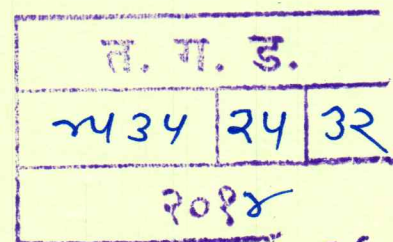 त. ग. ड.
४५३५ २५ ३२
२०१४